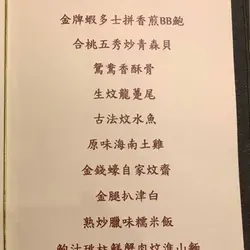 金牌蝦多士拼香煎BB鮑
合桃五秀炒青森貝
鴛鴦香酥骨
生炆龍躉尾
古法炆水魚
原味海南土雞
金錢蠔自家炆齋
金腿扒津白
熟炒臘味糯米飯
鮑汁瑤柱鮮蟹肉炆準山麵